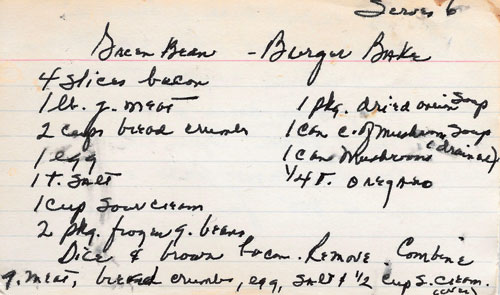 Serves 6
Green Bean - Burger Bake
4 slices bacon
1 lb. g. meat
2 cups bread crumbs
1 egg
1 t. salt
1 cup sour cream
2 pkg. frozen g. beans
1 pkg. dried onion soup
1 can c. of mushroom soup
1 can mushrooms (drained)
1/4 t. oregano
Dice & brown bacon. Remove. Combine
g. meat, bread crumbs, egg, salt & 1/2 cup s. cream.
(over)